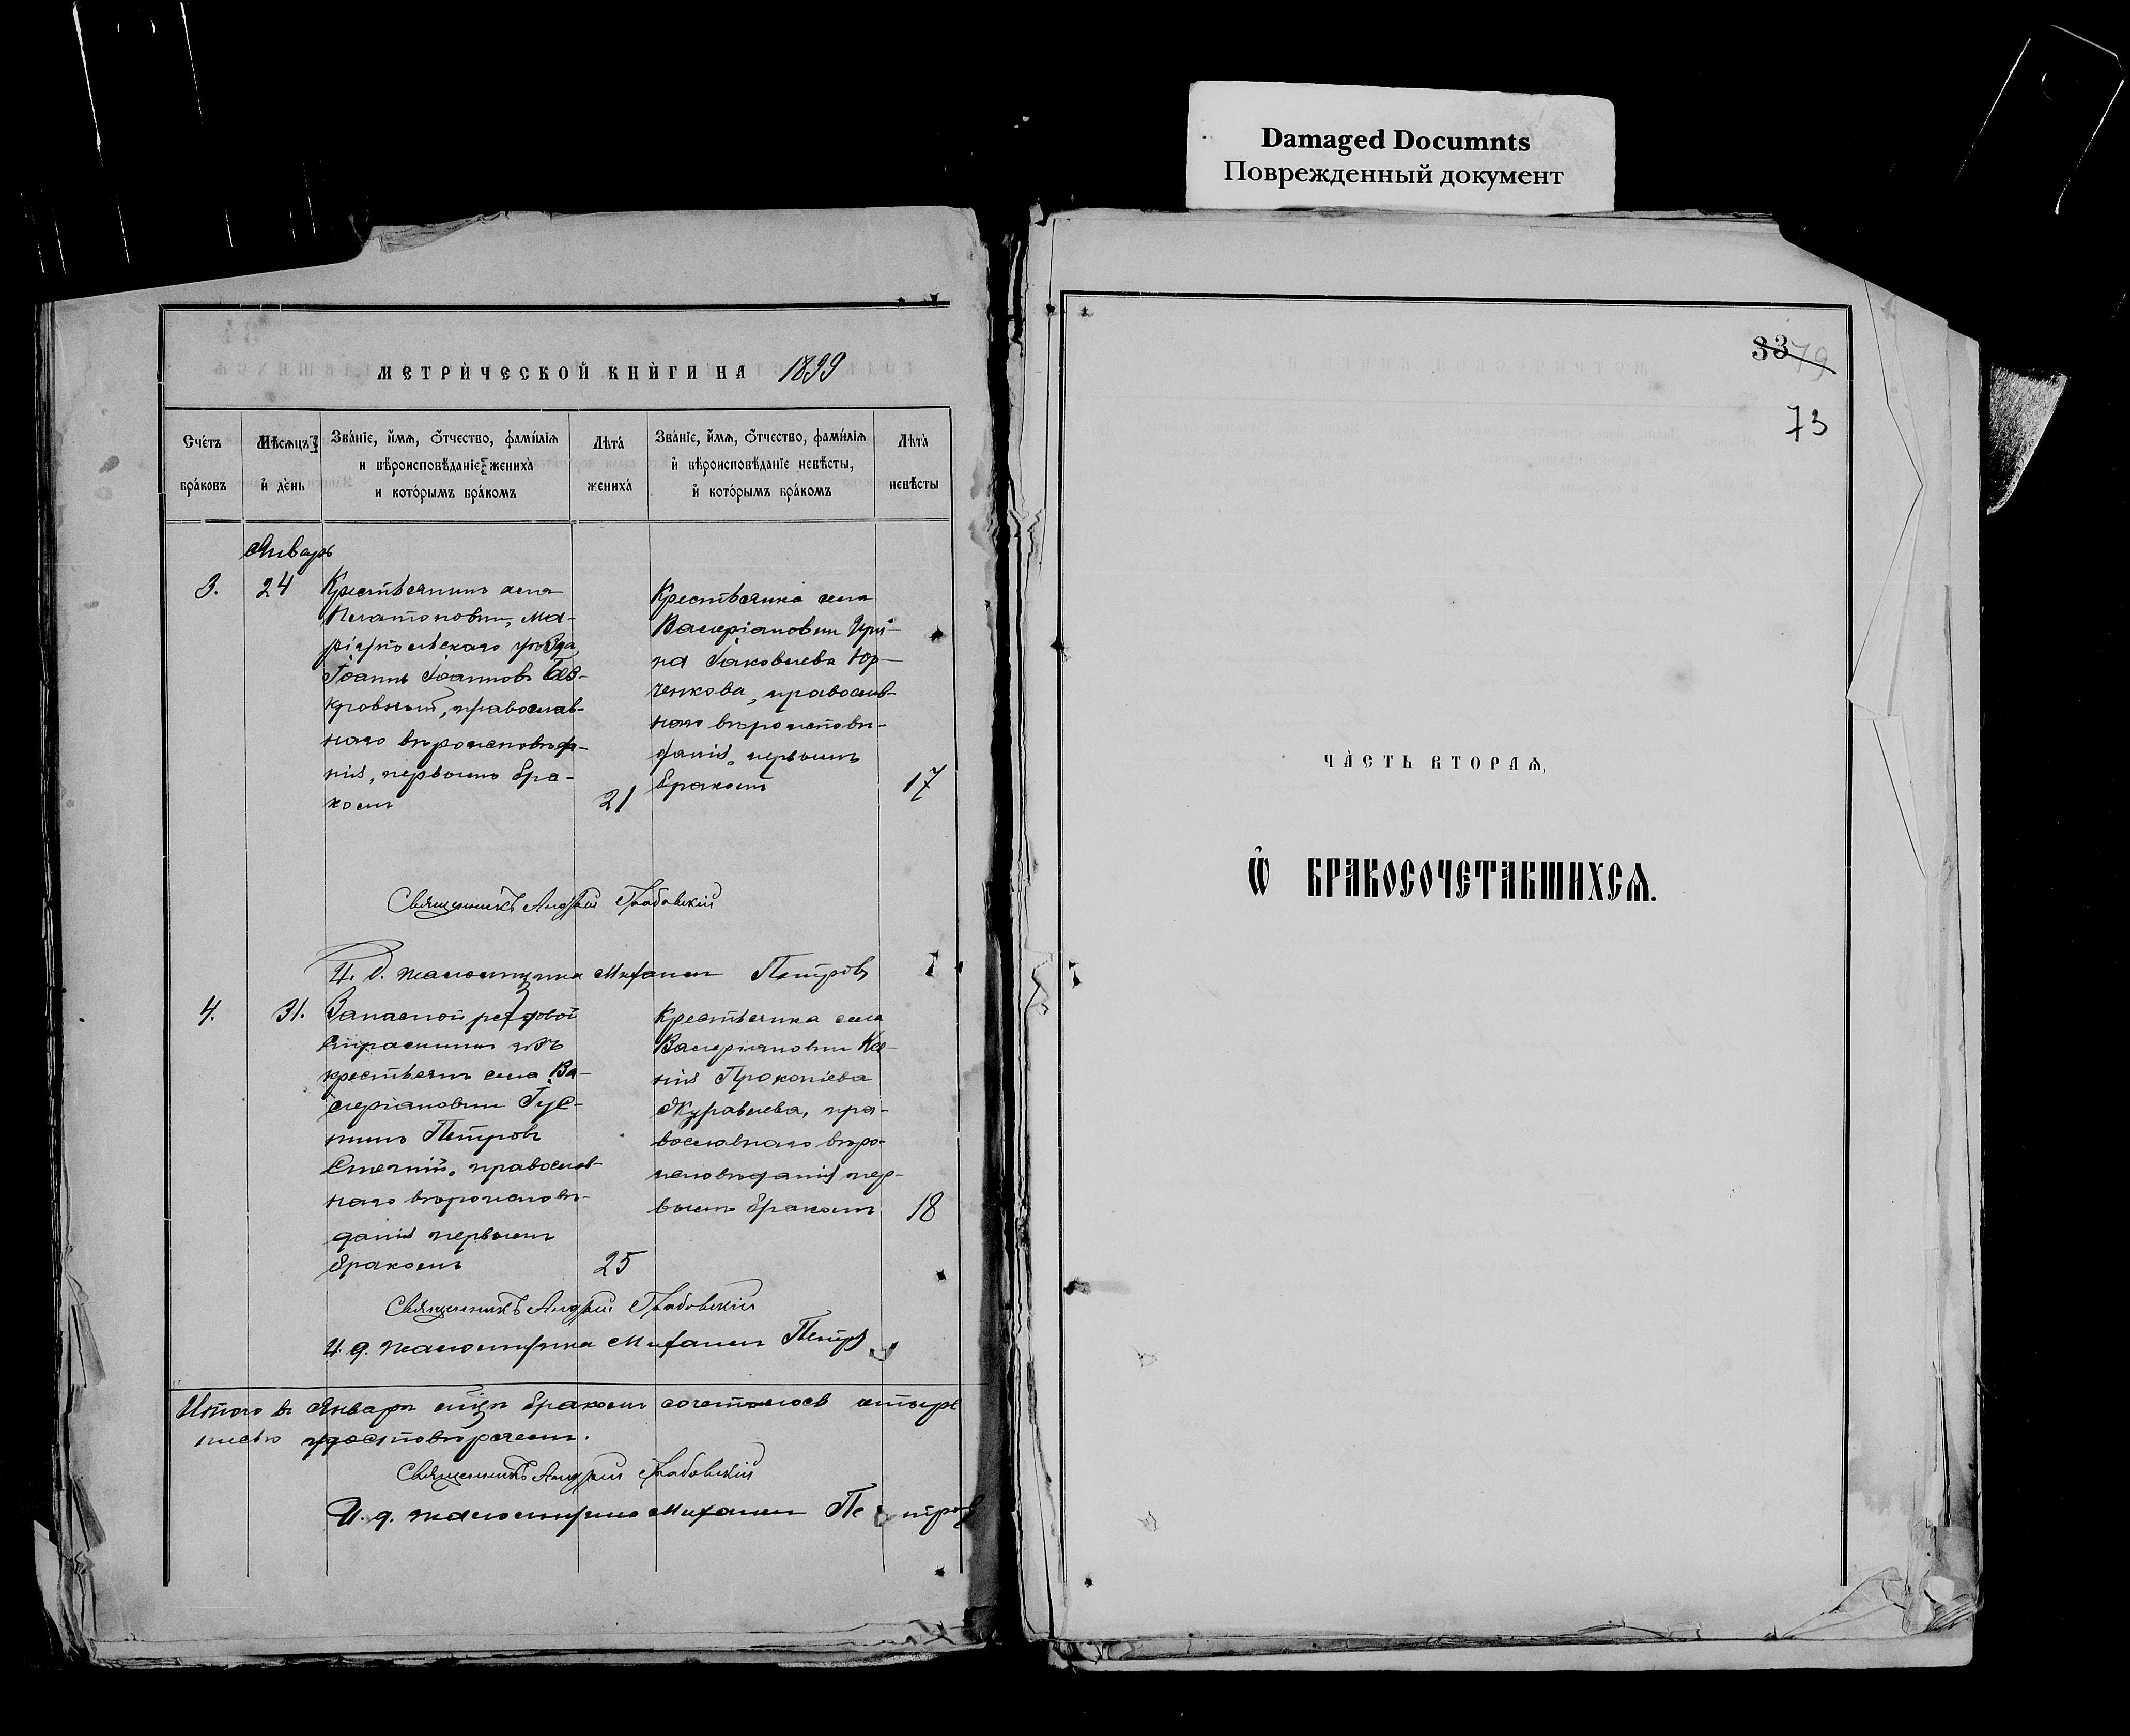 Damaged Documnts
Поврежденный документ
МЕТРИ́ЧЕСКОЙ КНИ́ГИ НА 1899
Сче́тъ бра́ковъ
Мѣсѧцъ и҆ де́нь
Зва́нїе, и҆́мѧ, ѻ҆́тчество, фами́лїѧ
и вѣроисповѣ́данїе жениха̀
и кото́рымъ бра́комъ
Лѣта̀ жениха̀
Зва́нїе, и҆́мѧ, ѻ҆́тчество, фами́лїѧ
и҆ вѣроисповѣ́данїе невѣ́сты,
и҆ кото́рымъ бра́комъ
Лѣта̀ невѣ́сты
Январь
3.
24
Крестьянинъ села
Платоновки, Ма-
ріупольскаго уѣзда,
Іоаннъ Іоанновъ
православ-
наго вѣроисповѣда-
нія, первымъ бра-
комъ
21
Крестьянка села
Валеріановки Ири-
на Іаковлева Юр-
ченкова, православ-
наго вѣроисповѣ-
данія, первымъ
бракомъ
17
Священникъ Андрей Грабовскій
И. д. псаломщика Михаилъ Петровъ
4.
31.
Запасной рядовой
изъ
крестьянъ села Ва-
леріановки Іус-
тинъ Петровъ
православ-
наго вѣроисповѣ-
данія первымъ
бракомъ
25
Крестьянка села
Валеріановки Ксе-
нія Прокопіева
Журавлева, пра-
вославнаго вѣро-
исповѣданія пер-
вымъ бракомъ
18
Священникъ Андрей Грабовскій
И. д. псаломщика Михаилъ Петровъ
Итого въ Январѣ м҃цѣ бракомъ сочеталось четыре
удостовѣряемъ.
Священникъ Андрей Грабовскій
И. д. псаломщика Михаилъ Петровъ
33 79
73
ЧА́СТЬ ВТОРАѦ,
Ѡ҆ БРАКОСОЧЕТАВШИХСѦ.